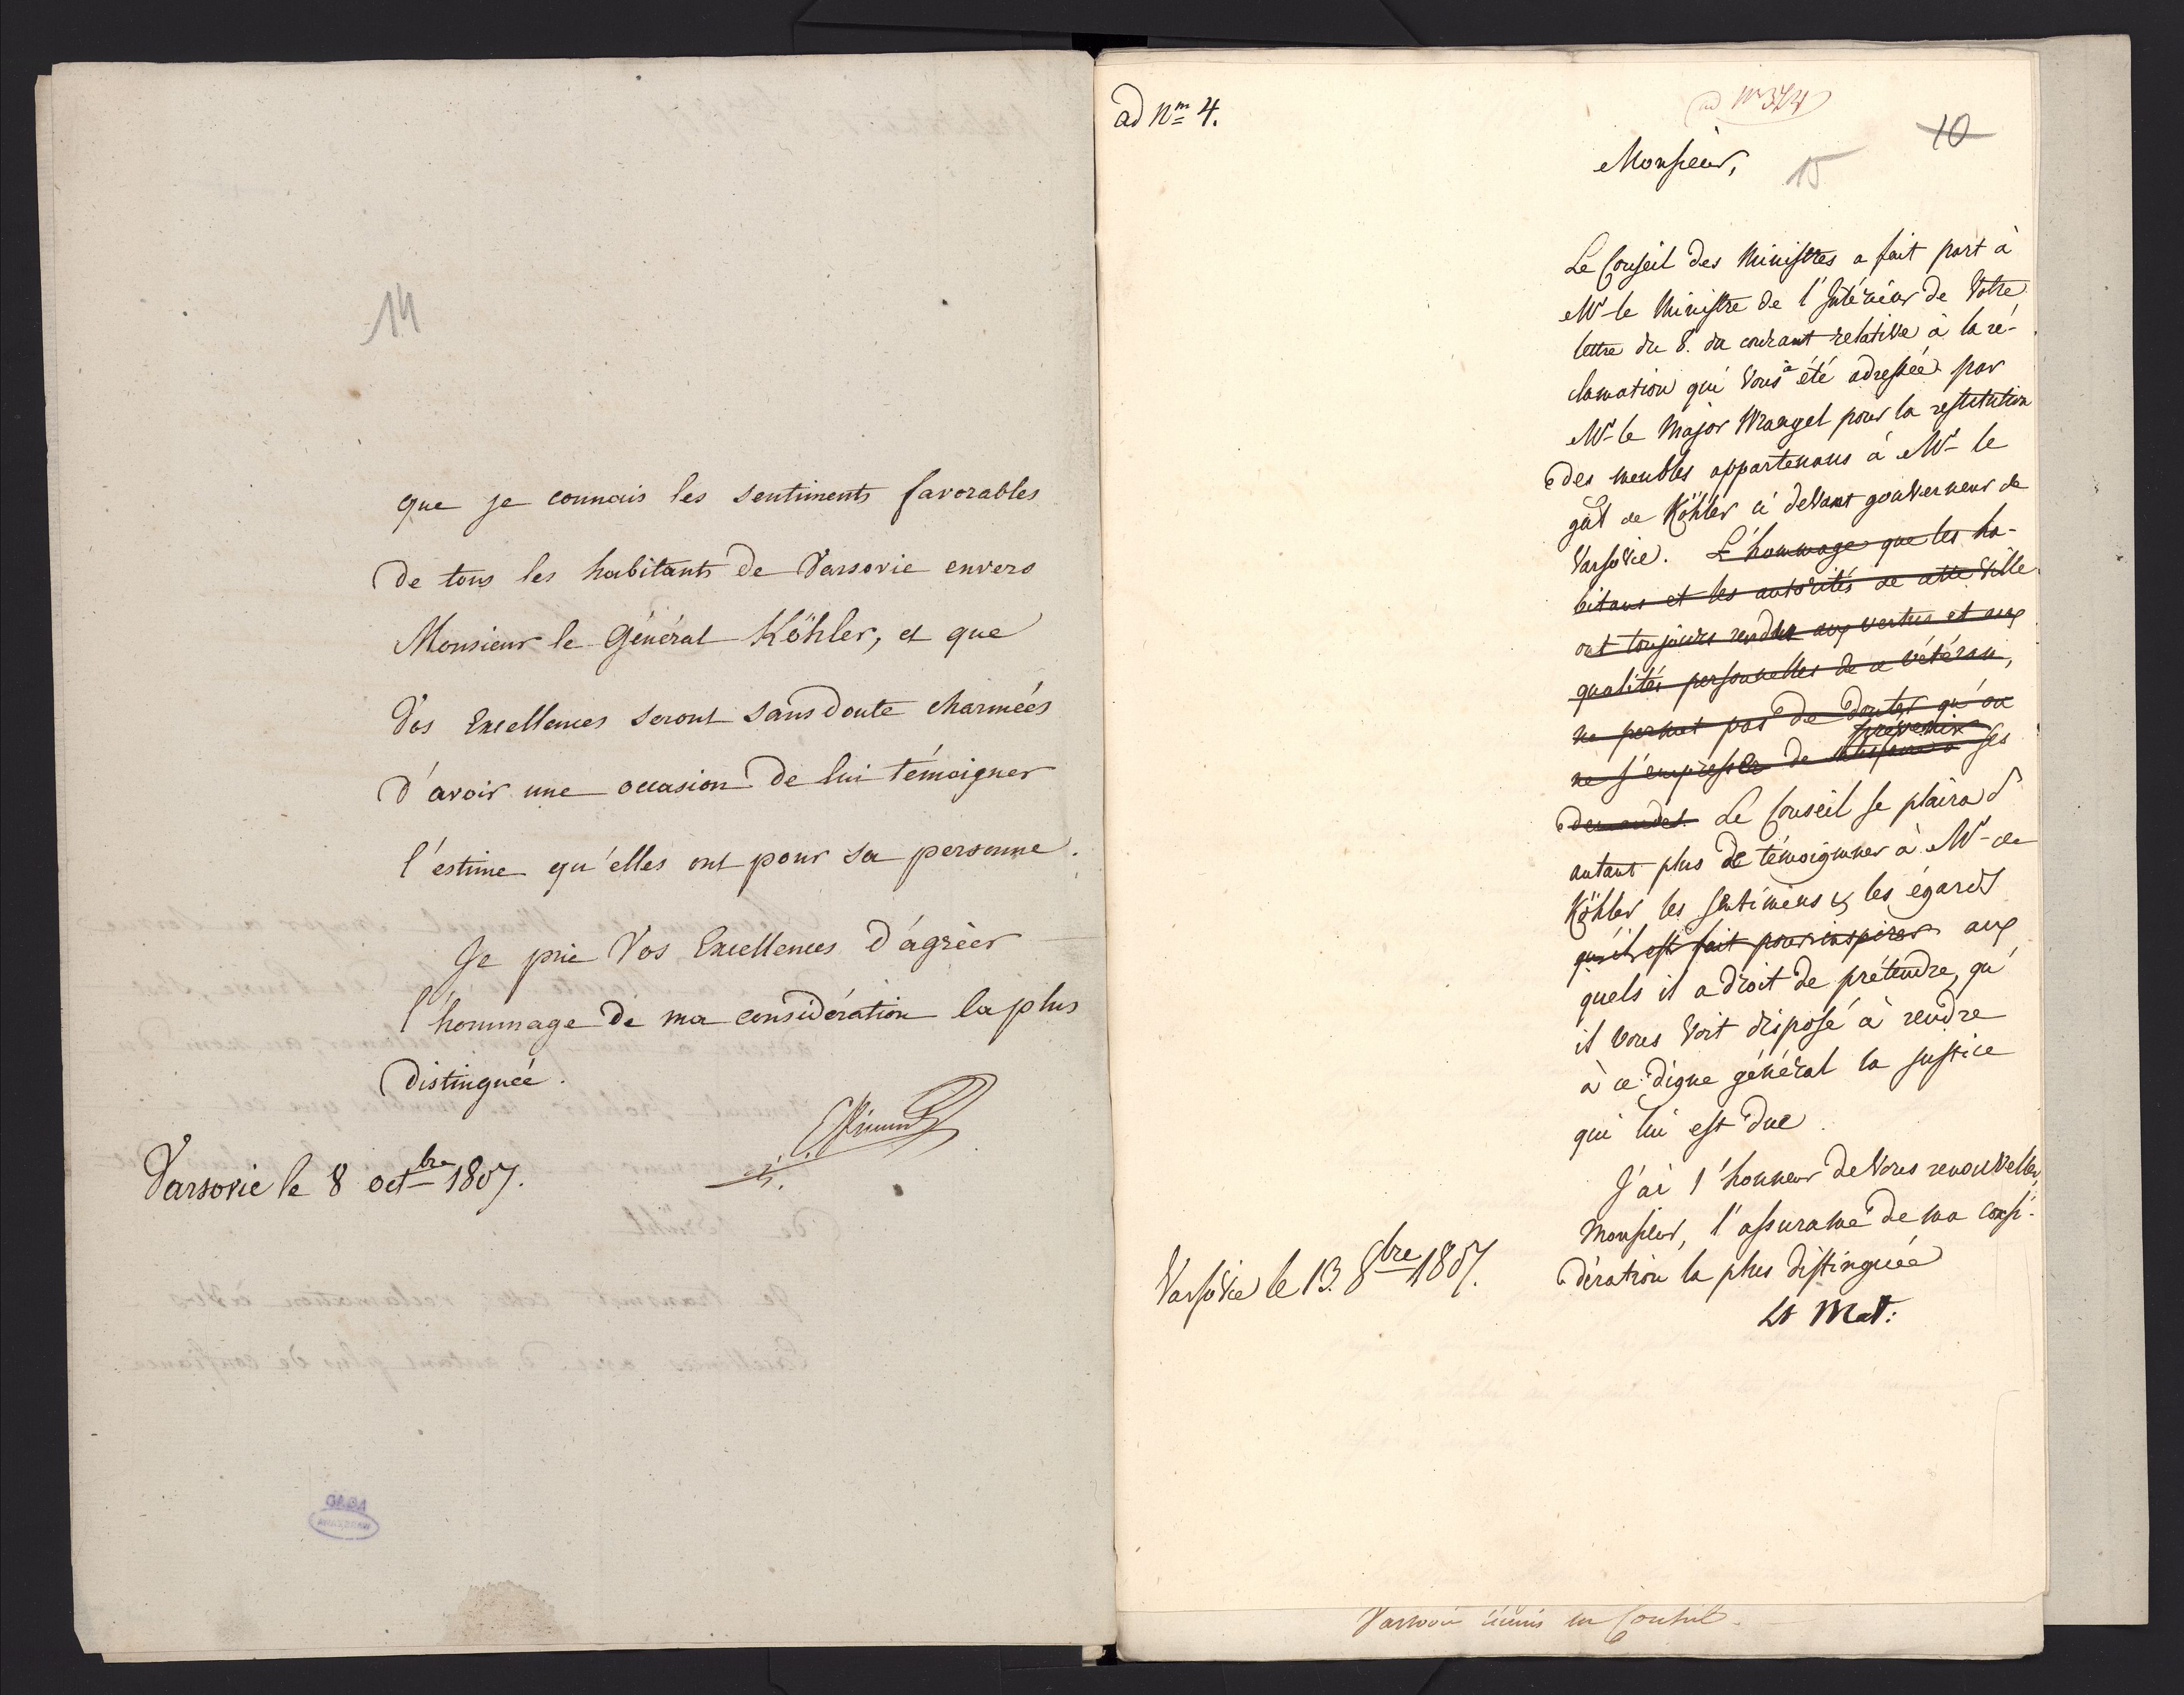 14
que je connais les sentiments favorables
de tous les habitants de Varsovie envers
Monsieur le Général Köhler, et que
Vos Excellences seront sans doute charmées
d'avoir une occasion de lui témoigner
l'estime qu'elles ont pour sa personne.
Je prie Vos Excellences d'agréer
l'hommage de ma considération la plus
distinguée.
Varsovie le 8 octbre 1807.
ad Nm 4.
10
Monsieur,
15
Le Conseil des Ministres a fait part à
Mr le Ministre de l'Intérieur de Votre
lettre du 8. du courant relative à la ré-
clamation qui Vous a été adressée par
Mr le Major Wrangel pour la restitution
des meubles appartenans à Mr le
gál de Köhler ci devant gouverneur de
Varsovie. L'hommage que les ha-
bitans et les autorités de cette Ville
ont toujours rendu aux vertus et aux
qualités personnelles de ce vétéran,
ne permet pas de douter qu'on
prévenir
ne s'empresse de ses
demandes. Le Conseil se plaira d'
autant plus de témoigner à Mr de
Köhler les sentimens & les égards
qu'il est fait pour inspirer aux
quels il a droit de prétendre, qu'
il vous voit disposé à rendre
à ce digne général la justice
qui lui est due.
J'ai l'honneur de Vous renouveller,
Monsieur, l'assurance de ma consi-
dération la plus distinguée
St Mał:
Varsovie le 13. 8bre 1807.